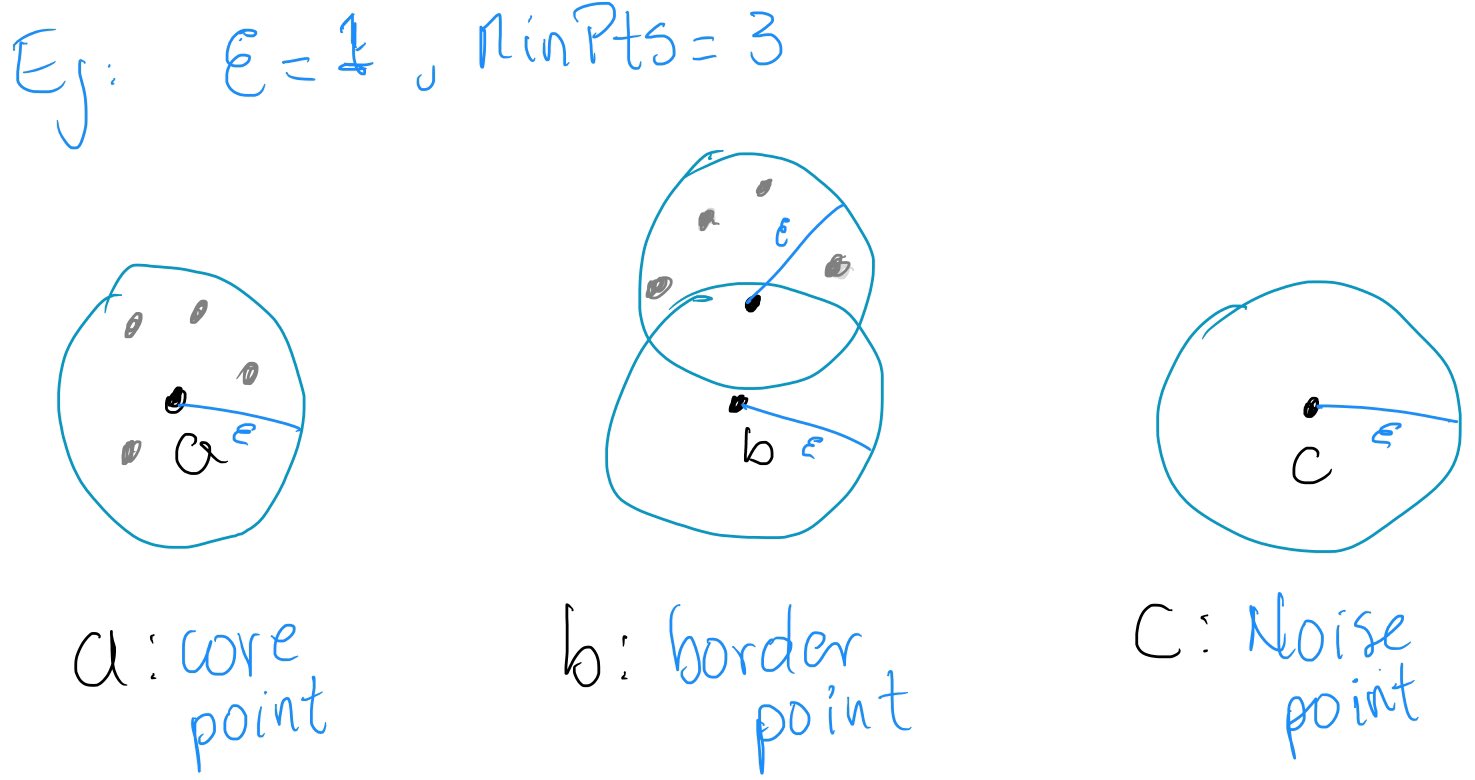 Eg: ε = 1, MinPts = 3
ε
a ε
b ε
c ε
a: core point
b: border point
c: Noise point